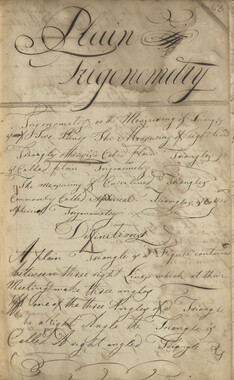 Plain
Trigonometry
Trigonometry is the Measuring of Triangles
The Measuring of right lined
Triangles otherwise Called plain Triangles
is Called plain Trigonometry
The measuring of Curvelined Triangles
Commonly Called Spherical Triangles, is Called
Spherical Trigonometry
Definitions
A plain Triangle is a Figure contained
between three right Lines which at their
Meeting make three angles
If one of the three Angles of a Triangle
be a right Angle the Triangle is
Called A right angled Triangle